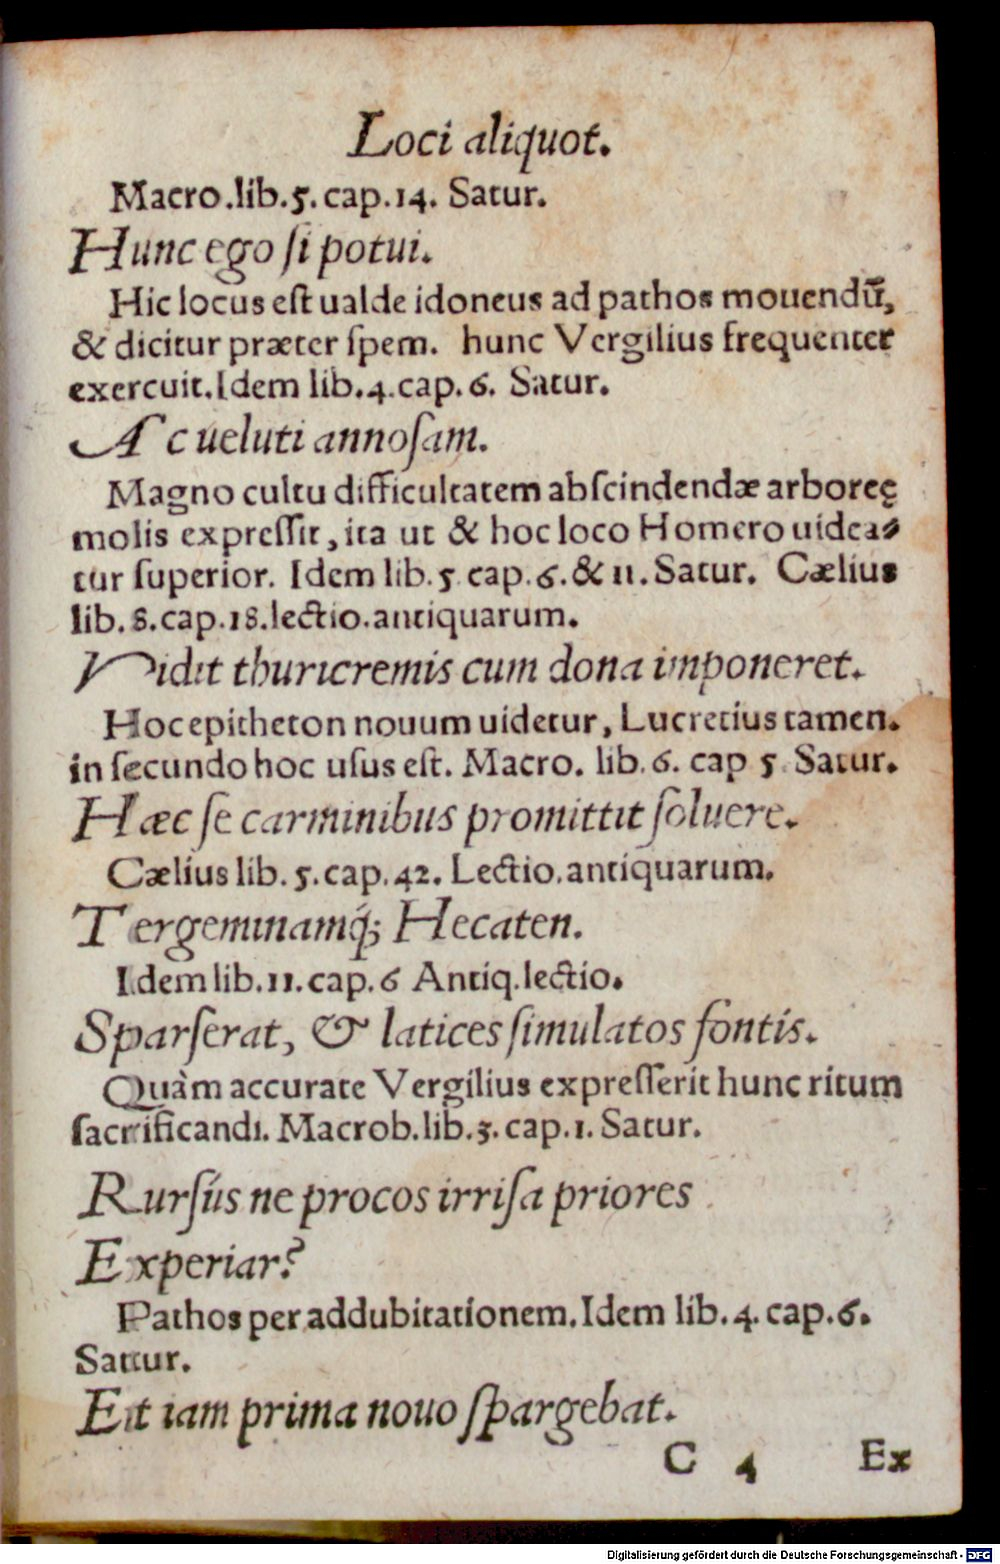 Loci aliquot.
Macro.lib.5.cap.14. Satur.
Hunc ego ſi potui.
Hic locus eſt ualde idoneus ad pathos mouendū,
& dicitur præter ſpem. hunc Vergilius frequenter
exercuit. Idem lib.4.cap.6. Satur.
Ac ueluti annoſam.
Magno cultu difficultatem abſcindendæ arboreę
molis expreſſit, ita ut & hoc loco Homero uidea⸗
tur ſuperior. Idem lib.5 cap.6.& 11. Satur. Cælius
lib.8.cap.18.lectio.antiquarum.
Vidit thuricremis cum dona imponeret.
Hoc epitheton nouum uidetur, Lucretius tamen.
in ſecundo hoc uſus eſt. Macro. lib.6. cap 5 Satur.
Hæc ſe carminibus promittit ſoluere.
Cælius lib.5.cap.42. Lectio.antiquarum.
Tergeminamq́; Hecaten.
Idem lib.11.cap.6 Antiq.lectio.
Sparſerat, & latices ſimulatos fontis.
Quàm accurate Vergilius expreſſerit hunc ritum
ſacrificandi. Macrob.lib.3.cap.1. Satur.
Rurſús ne procos irriſa priores
Experiar?
Pathos per addubitationem. Idem lib.4.cap.6.
Sattur.
Eit iam prima nouo ſpargebat.
C 4 Ex
Digitalisierung gefördert durch die Deutsche Forschungsgemeinschaft - DFG